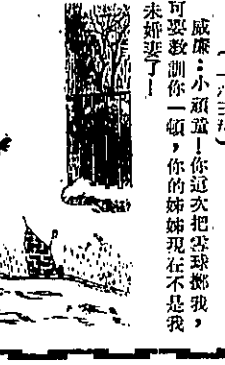 威廉：小頑童！你這次把雪球擲我，
可要教訓你一頓，你的姊姊現在不是我
未婚妻了！